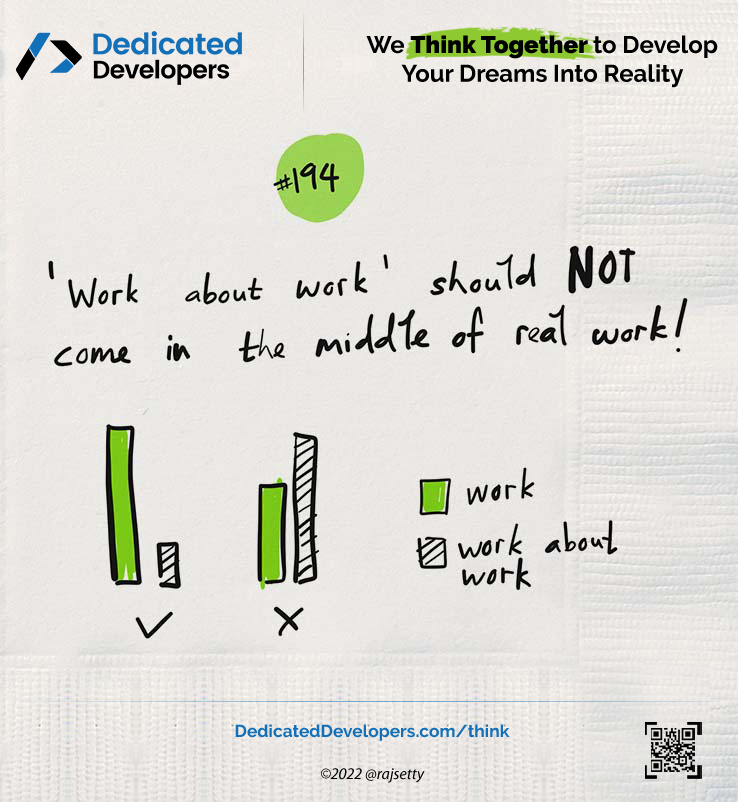 Dedicated
Developers
We Think Together to Develop
Your Dreams Into Reality
#194
'Work about work' should NOT
come in the middle of real work!
work
work about
work
DedicatedDevelopers.com/think
©2022 @rajsetty